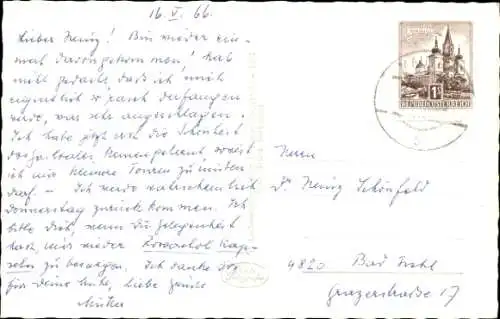 16. V. 66.
Lieber Heinz! Bin wieder ein-
mal davongekommen! Hab
nicht gedacht dass ich mich
eigentlich so rasch derfangen
würde, was sehr angeschlagen.
Ich habe jetzt erst die Schönheit
des kennengelernt, soweit
ich mir kleinere Touren zu muten
darf. – Ich werde wahrscheinlich
Donnerstag zurück kommen. Ich
bitte Dich, wenn Du Gelegenheit
hast, mir wieder Kap-
seln zu besorgen. Ich danke Dir
für Deine Mühe, liebe Grüsse
Mutter
MARIAZELL
1S
REPUBLIK ÖSTERREICH
Herrn
Dr. Heinz Schönfeld
4820 Bad Ischl
Grazerstrasse 17